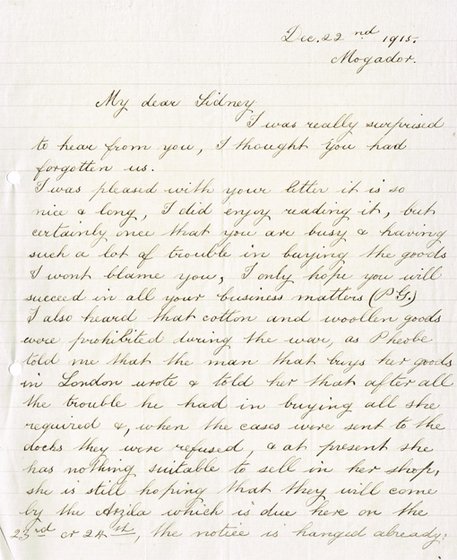 Dec. 22nd 1915.
Mogador.
My dear Sidney
I was really surprised
to hear from you, I thought you had
forgotten us.
I was pleased with your letter it is so
nice & long, I did enjoy reading it, but
certainly once that you are busy & having
such a lot of trouble in buying the goods
I wont blame you, I only hope you will
succeed in all your business matters (P.G.)
I also heard that cotton and woollen goods
were prohibited during the war, as Pheobe
told me that the man that buys her goods
in London wrote & told her that after all
the trouble he had in buying all she
required &, when the cases were sent to the
docks they were refused, & at present she
has nothing suitable to sell in her shop,
she is still hoping that they will come
by the Arzila which is due here on the
23rd or 24th, the notice is hanged already;